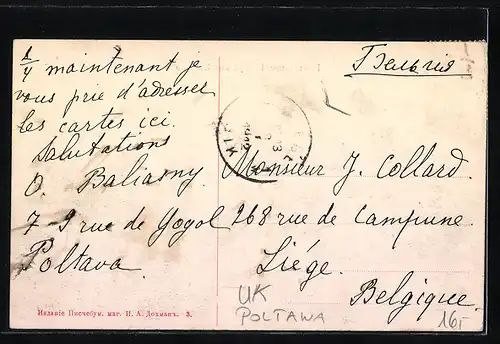 1/4 maintenant je
vous prie d'adresser
les cartes ici.
Salutations
O. Baliasny
7-9 rue de Gogol
Poltava
Бельгiя
Monsieur J. Collard.
268 rue de Campine
Liége.
Belgique.
Изданiе Писчебум. маг. И. А. Дохманъ. 3.
UK
POLTAWA
16,-